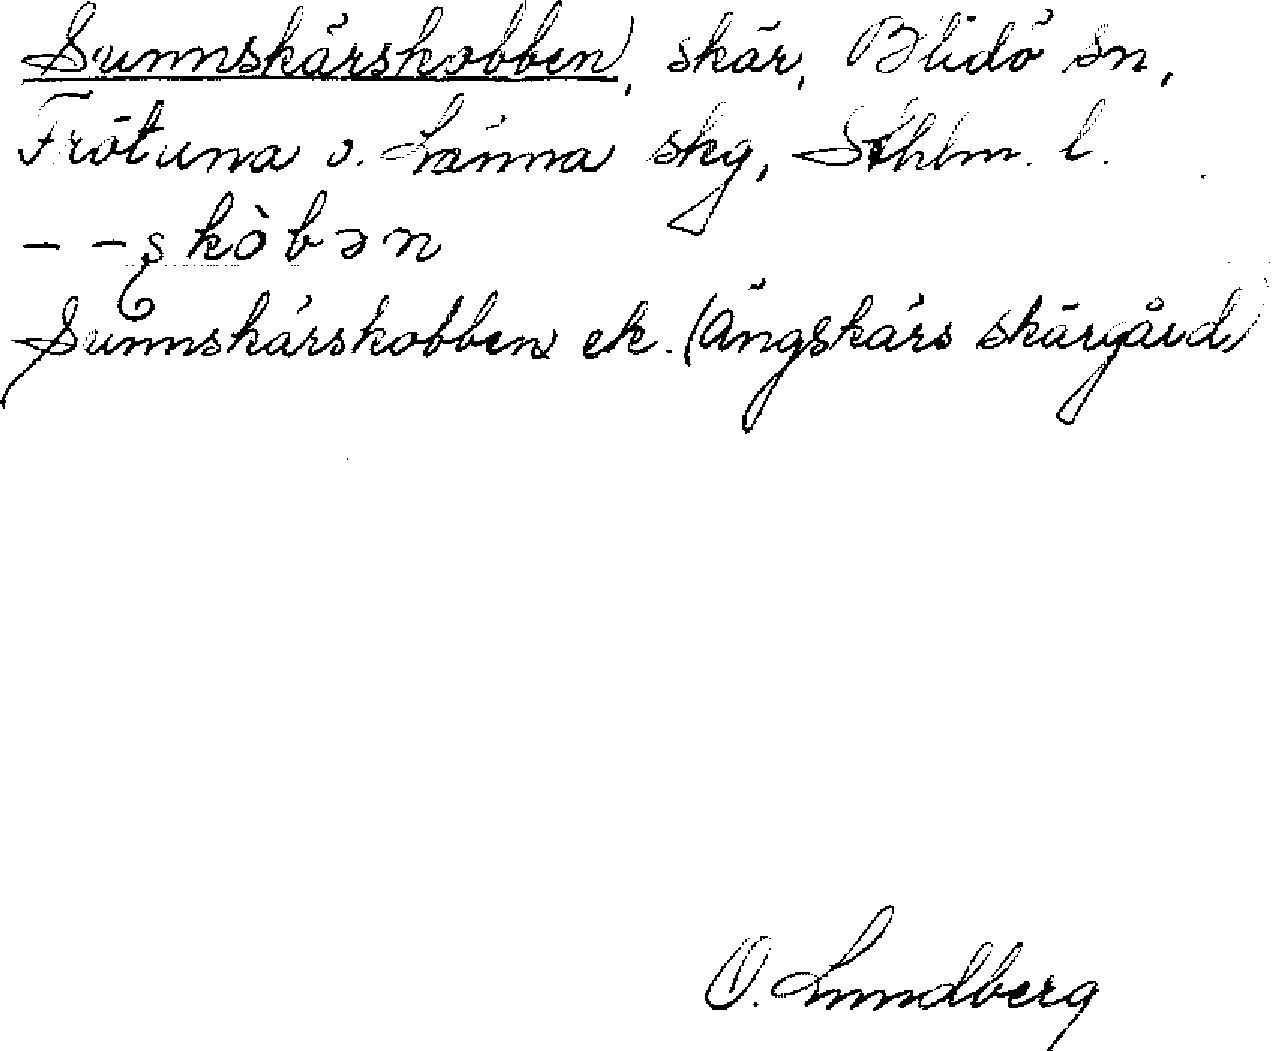 Sunnskärskobben, skär, Blidö sn,
Frötuna o. Länna skg, Sthlm. l.
– – skòbən
Sunnskärskobben ek. (Ängskärs skärgård)
O. Lundberg